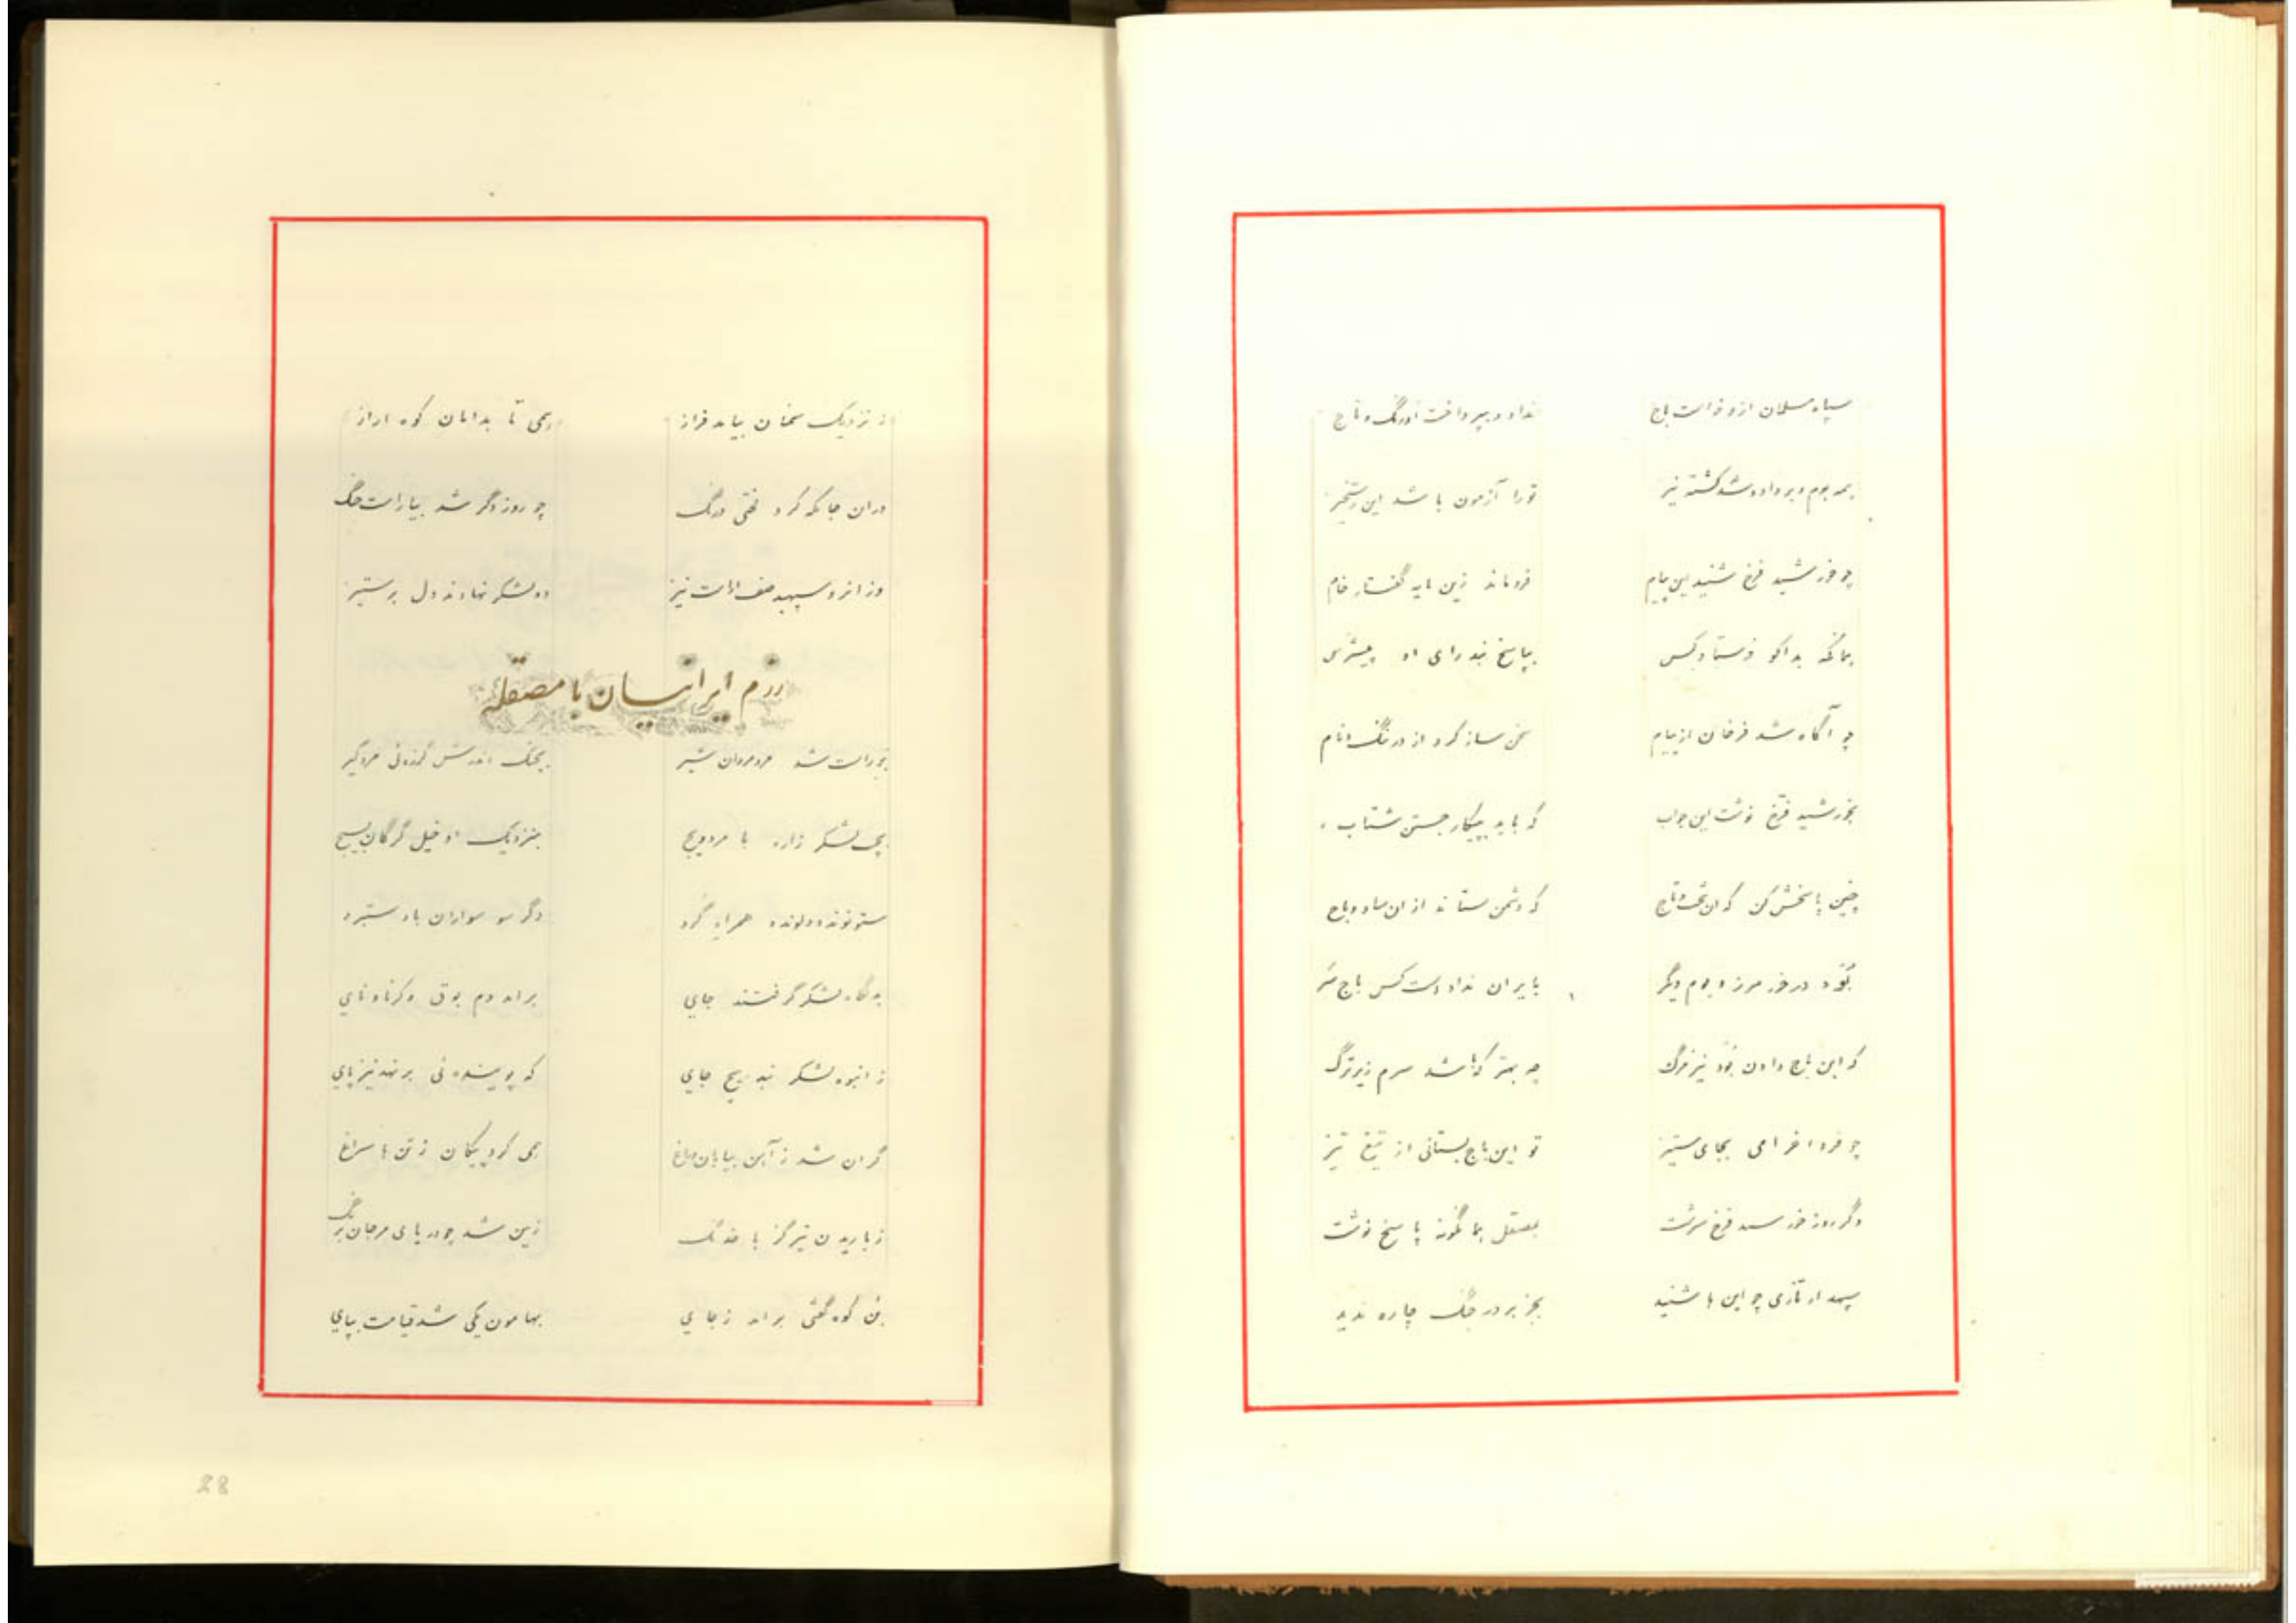 سپاه مسلمان ازو خواست باج نداد و بپرداخت اورنگ و تاج
همه بوم و بر داد و شد کشته نیز تورا آزمون باشد این رستخیز
چو خورشید فرخ شنید این پیام فروماند زین مایه گفتار خام
همانگه بداکو فرستاد کس بپاسخ نبد رای او پیشرس
چو آگاه شد فرخان از پیام سخن ساز کرد از در ننگ و نام
بخورشید فرخ نوشت این جواب که باید بپیکار جستن شتاب
چنین پاسخش کن که ان تخت و تاج که دشمن ستاند از ان ساو و باج
بود در خور مرز و بوم دگر بایران نداد است کس باج سر
که این باج دادن بود نیز مرگ چه بهتر که باشد سرم زیر ترگ
چو فردا خرامی بجای ستیز تو این باج بستانی از تیغ تیز
دگر روز خورشید فرخ سرشت بمصقل بمانگونه پاسخ نوشت
سپهدار تازی چو این ها شنید بجز بر در جنگ چاره ندید
ز نزدیک سمنان بیامد فراز همی تا بدامان کوه اراز
دران جایگه کرد لختی درنگ چو روز دگر شد بیاراست جنگ
وز انرو سپهبد صف اراست نیز دو لشکر نهادند دل بر ستیز
رزم ایرانیان با مصقله
پی لشکر زارم با مردویج بنزدیک او خیل گرگان بسیج
ستونوند و دولوند همراه گرد دگر سو سواران باد ستبرد
به گاه لشکر گرفتند جای برامد دم بوق و کرنا و نای
ز انبوه لشکر نبد هیچ جای که پوینده ئی بر نهد نیز پای
گران شد ز آهن بیابان و راغ همی کرد پیکان ز تن ها سراغ
ز باریدن تیر گز با خدنگ زمین شد چو دریای مرجان برنگ
بن کوه گفتی برامد ز جای بهامون یکی شد قیامت بپای
28